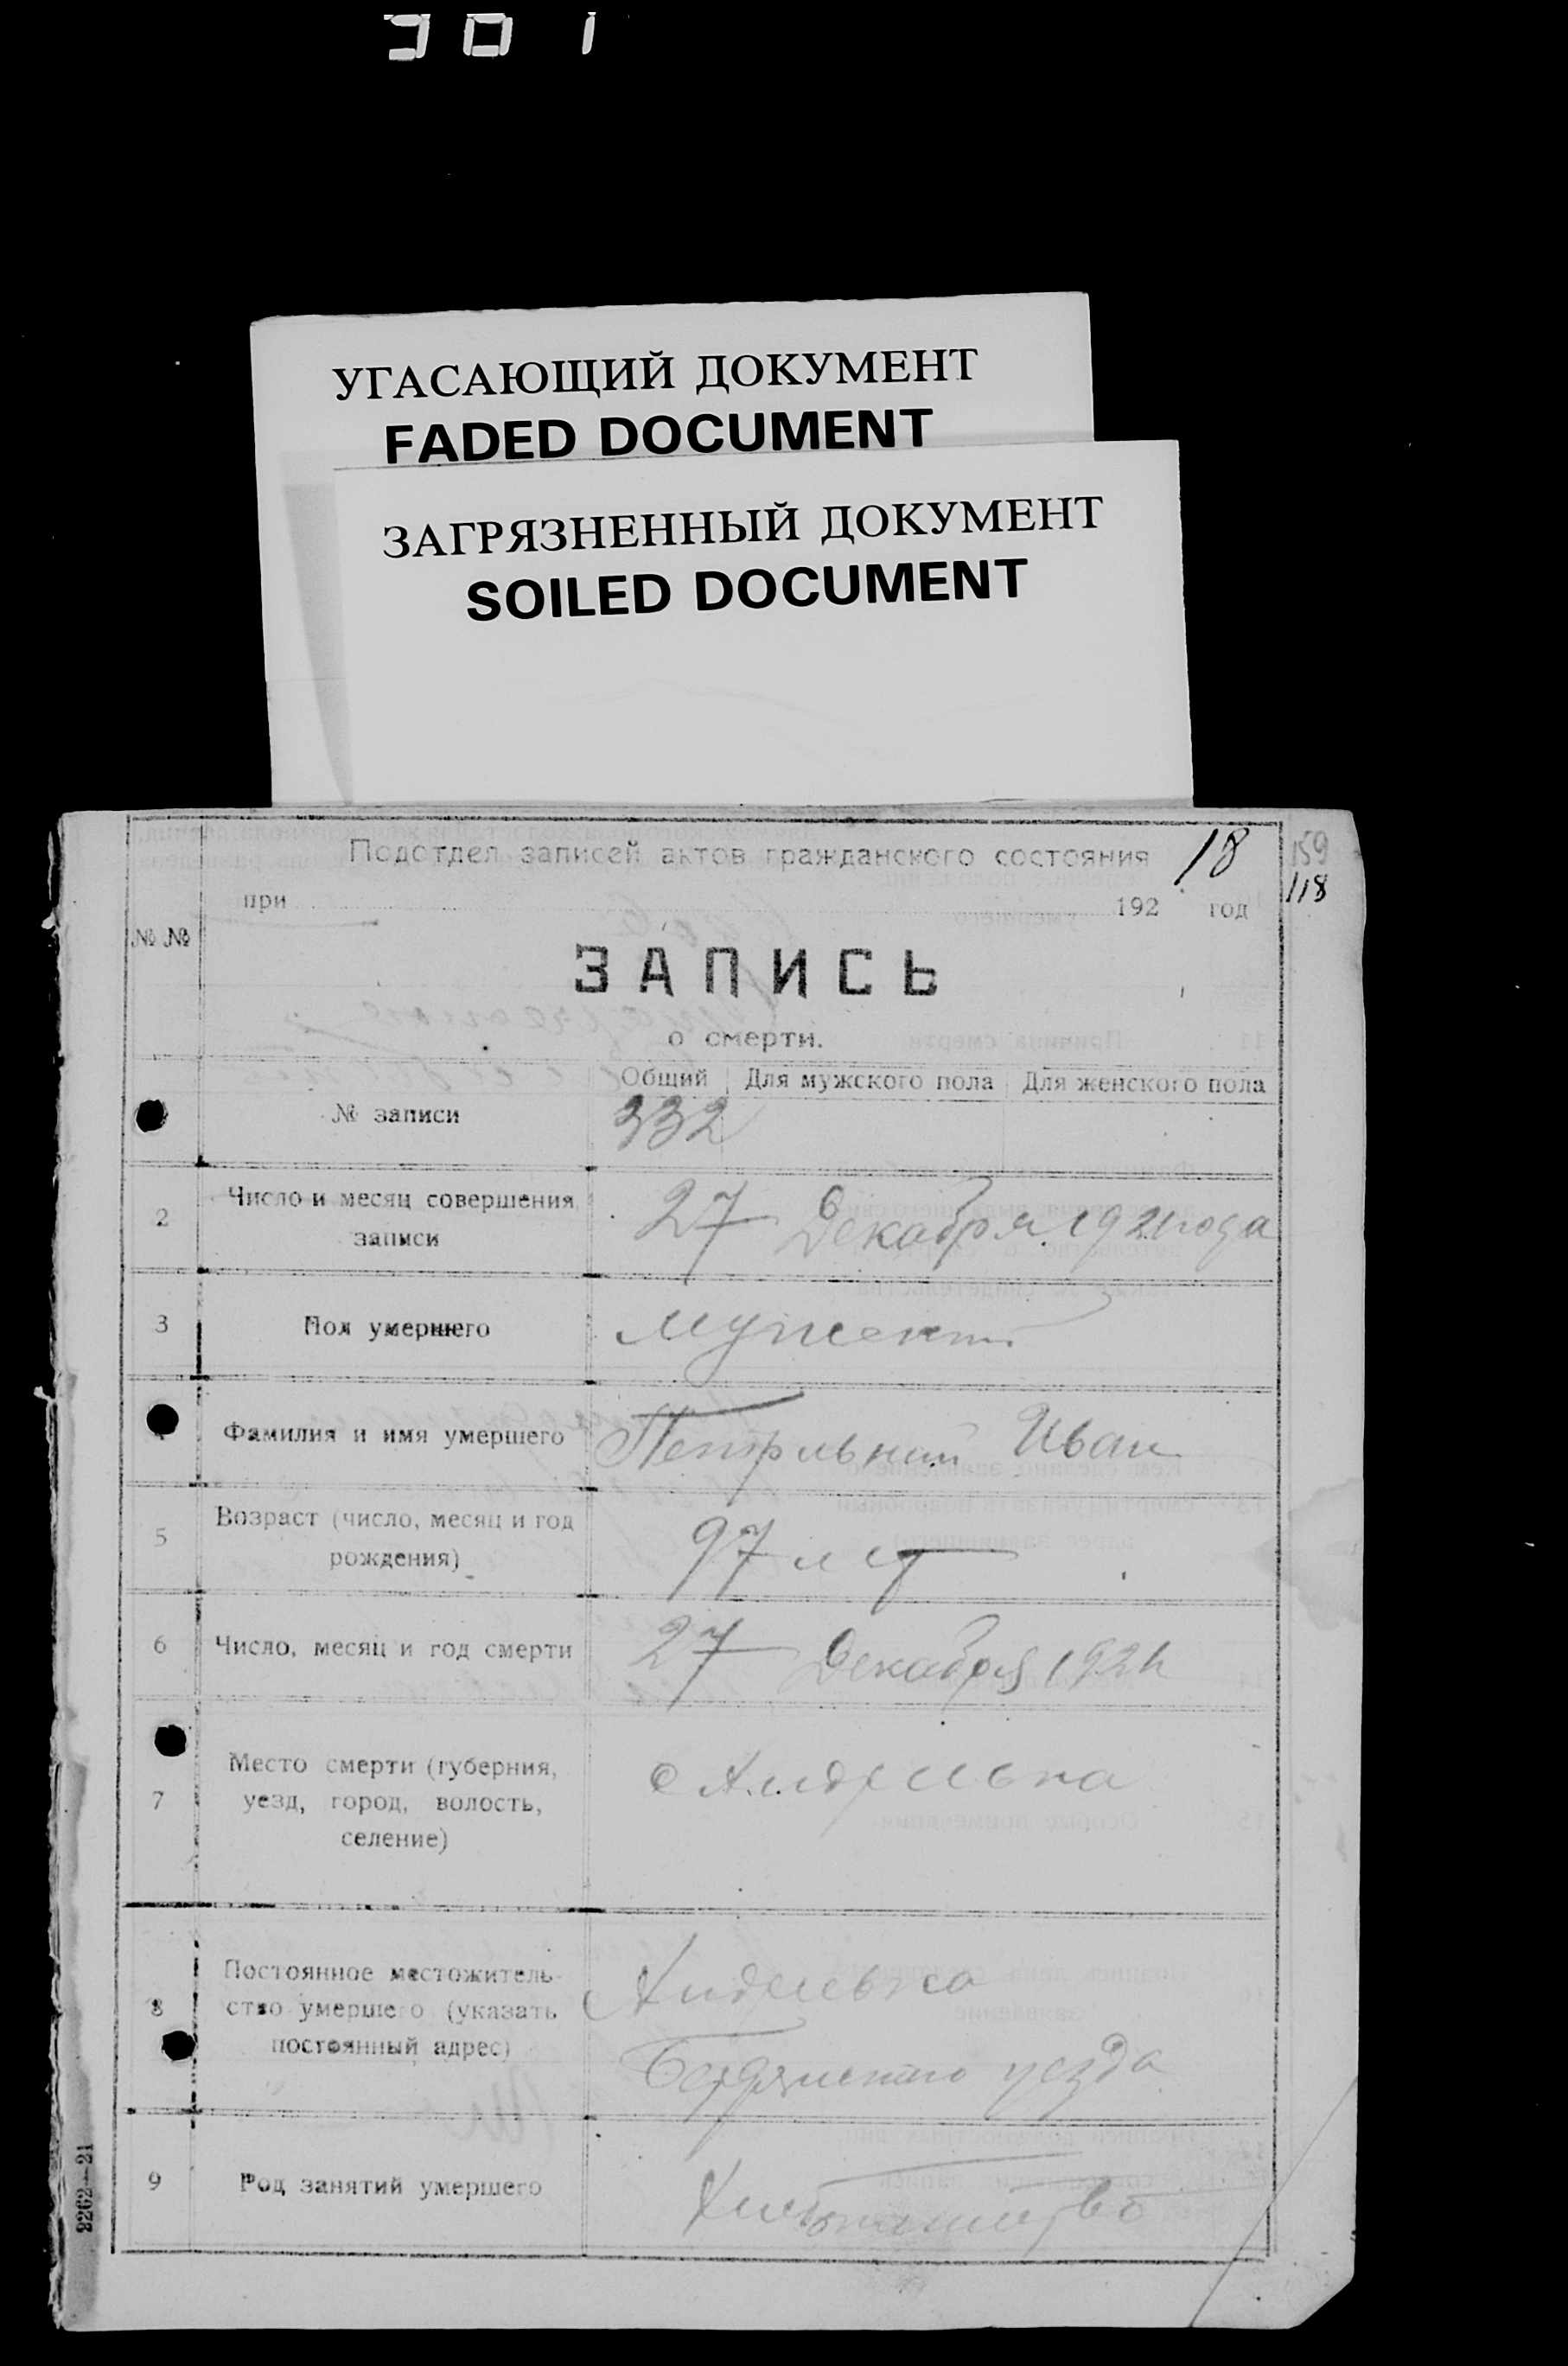 УГАСАЮЩИЙ ДОКУМЕНТ
FADED DOCUMENT
ЗАГРЯЗНЕННЫЙ ДОКУМЕНТ
SOILED DOCUMENT
Подотдел записей актов гражданского состояния 18
159
118
при 192 год
№ №
ЗАПИСЬ
о смерти.
Общий Для мужского пола Для женского пола
№ записи 332
2 Число и месяц совершения записи 27 Декабря 1921 года
3 Пол умершего
Фамилия и имя умершего Иван
5 Возраст (число, месяц и год рождения) 97 лет
6 Число, месяц и год смерти 27 Декабря 192
7 Место смерти (губерния, уезд, город, волость, селение) с
8 Постоянное местожитель-
ство умершего (указать
постоянный адрес) уезда
9 Род занятий умершего
2262—21